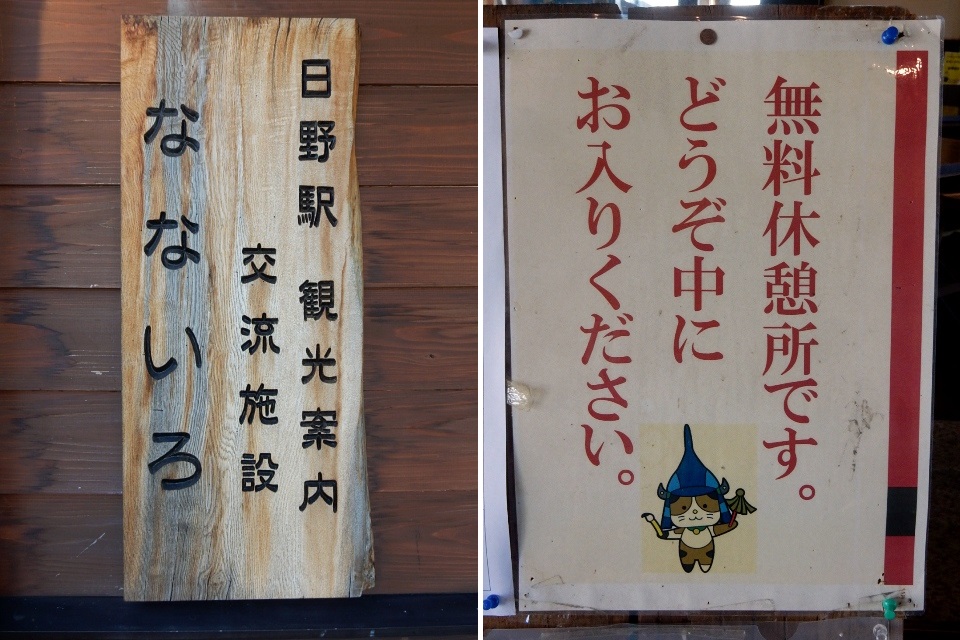 日野駅 観光案内
交流施設
なないろ
無料休憩所です。
どうぞ中に
お入りください。